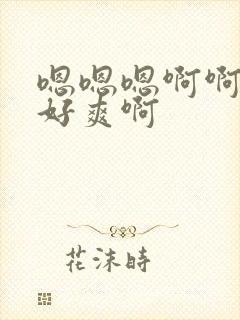 嗯嗯嗯啊啊
好爽啊
花沫時